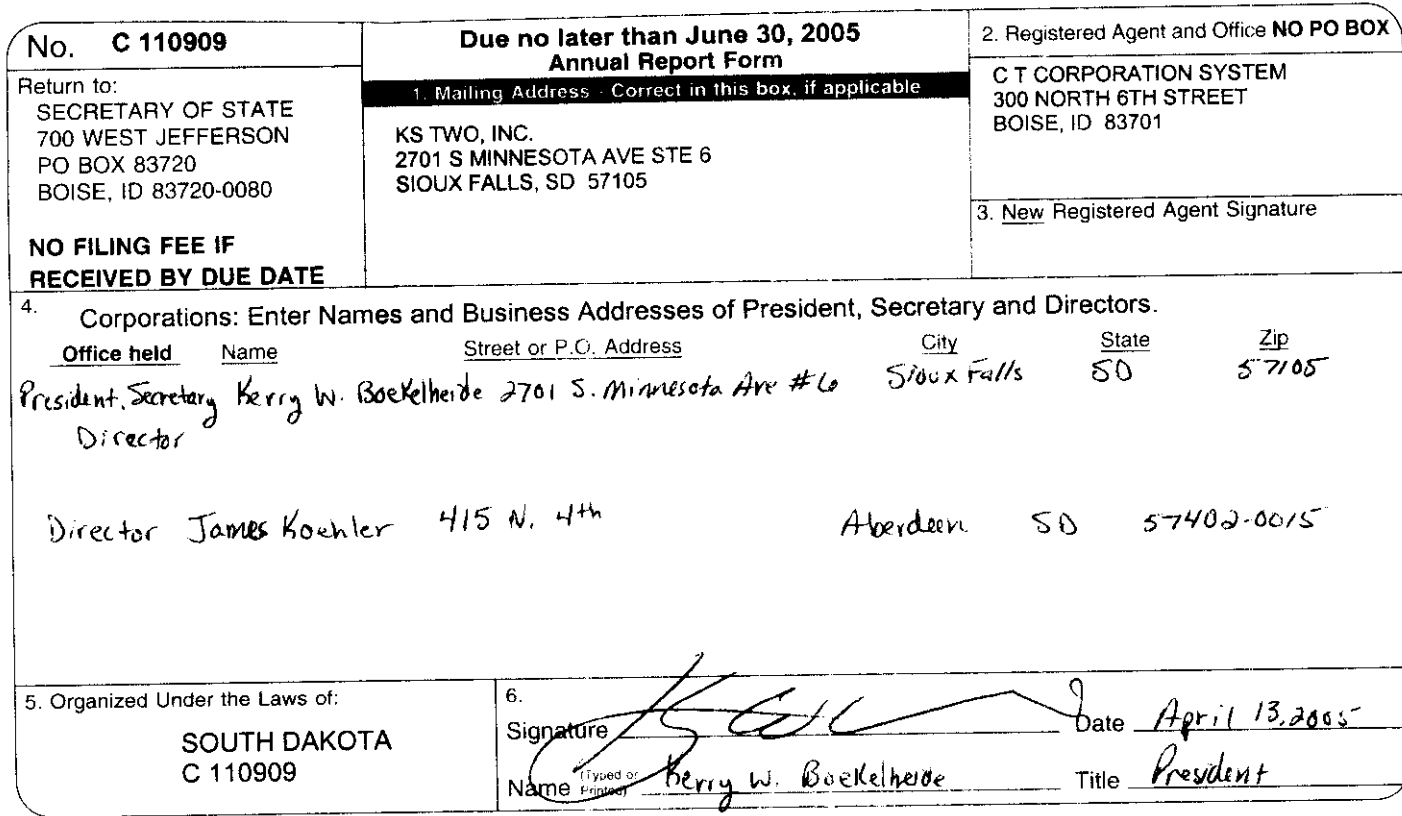 No. C 110909
Return to:
SECRETARY OF STATE
700 WEST JEFFERSON
PO BOX 83720
BOISE, ID 83720-0080
NO FILING FEE IF
RECEIVED BY DUE DATE
Due no later than June 30, 2005
Annual Report Form
1. Mailing Address - Correct in this box, if applicable
KS TWO, INC.
2701 S MINNESOTA AVE STE 6
SIOUX FALLS, SD 57105
2. Registered Agent and Office NO PO BOX
C T CORPORATION SYSTEM
300 NORTH 6TH STREET
BOISE, ID 83701
3. New Registered Agent Signature
4. Corporations: Enter Names and Business Addresses of President, Secretary and Directors.
Office held Name Street or P.O. Address City State Zip
President, Secretary Kerry W. Boekelheide 2701 S. Minnesota Ave #6 Sioux Falls SD 57105
Director
Director James Koehler 415 N. 4th Aberdeen SD 57402-0015
5. Organized Under the Laws of:
SOUTH DAKOTA
C 110909
6.
Signature Date April 13, 2005
Name (Typed or Printed) Kerry W. Boekelheide Title President